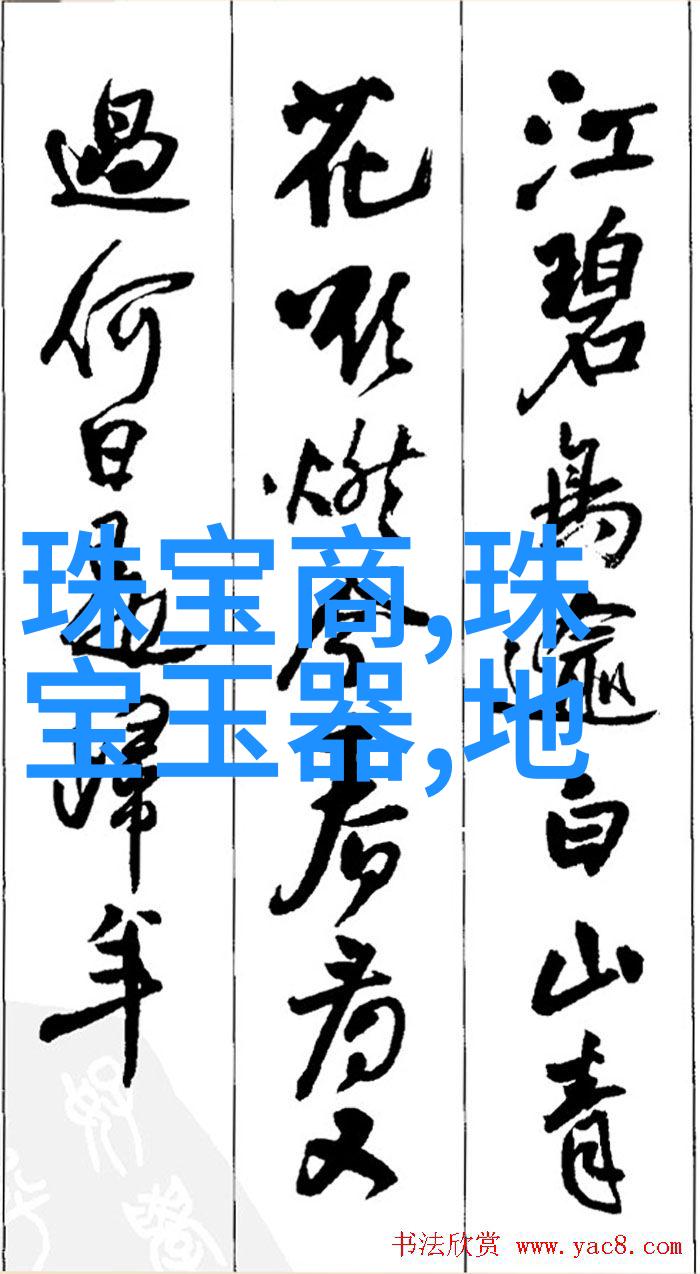 江碧鳥逾白山青
花欲燃今春看又
過何日是歸年
珠宝商,珠
宝玉器,地
书法欣赏 www.yac8.com